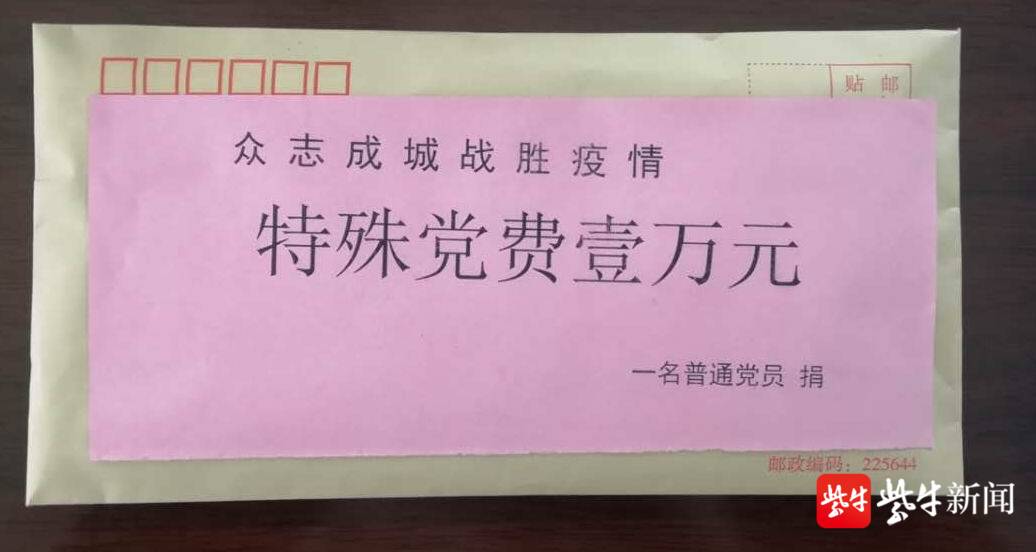 贴 邮
众志成城战胜疫情
特殊党费壹万元
一名普通党员 捐
邮政编码：225644
紫牛 紫牛新闻